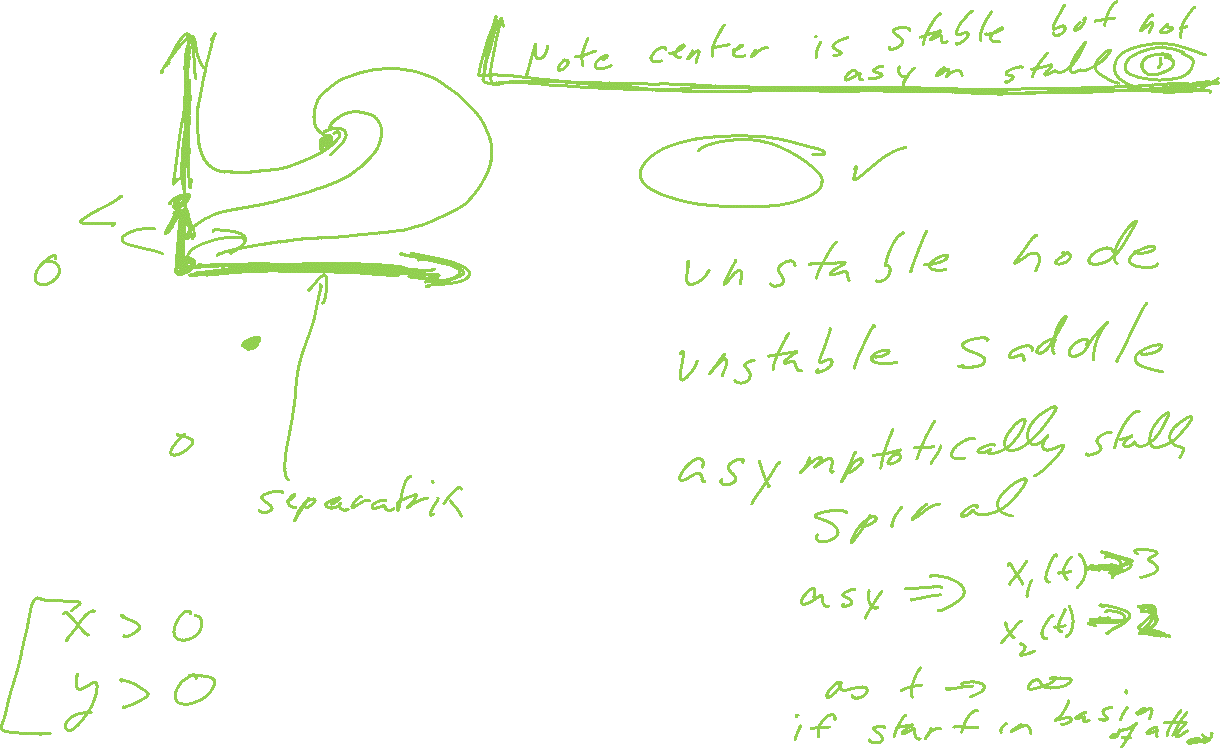 Note center is stable but not
asym stable
unstable node
unstable saddle
0
0
separatrix
asymptotically stable
spiral
asy ⇒ x₁(t) → 3
x₂(t) → 2
as t → ∞
if start in basin
of attr
x > 0
y > 0